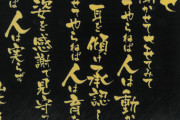 せ
やらねば人は動か
耳を傾け承認し
てやらねば人は育
姿を感謝で見守っ
人実らず